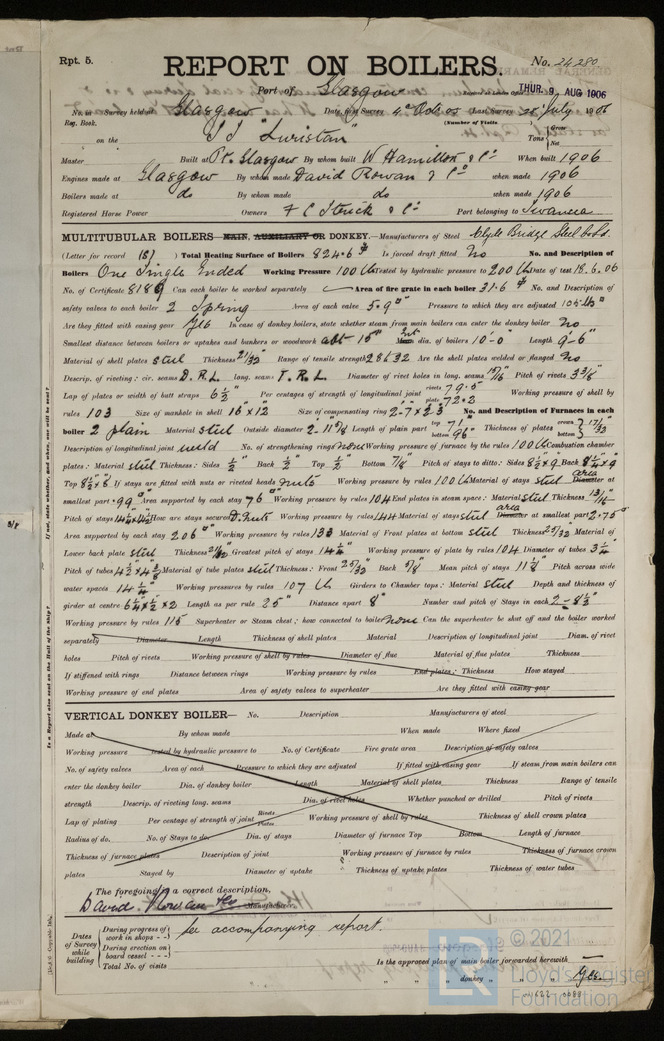 Rpt. 5.
REPORT ON BOILERS.
No. 24280
Port of Glasgow
THUR. 9 AUG 1906
No. in Survey held at Glasgow Date, first Survey 4th Oct 05 Last Survey 28 July 1906
Reg. Book. (Number of Visits
on the S.S "Luristan" Tons Gross Net
Master Built at Pt. Glasgow By whom built W Hamilton & Co When built 1906
Engines made at Glasgow By whom made David Rowan & Co when made 1906
Boilers made at do By whom made do when made 1906
Registered Horse Power Owners F C Strick & Co Port belonging to Swansea
MULTITUBULAR BOILERS MAIN, AUXILIARY OR DONKEY.—Manufacturers of Steel Clyde Bridge Steel Co Ld.
(Letter for record (S) ) Total Heating Surface of Boilers 824.6 Is forced draft fitted No No. and Description of
Boilers One Single Ended Working Pressure 100 lbs Tested by hydraulic pressure to 200 lbs Date of test 18.6.06
No. of Certificate Can each boiler be worked separately Area of fire grate in each boiler 31.6 No. and Description of
safety valves to each boiler 2 Spring Area of each valve 5.9" Pressure to which they are adjusted 105 lbs
Are they fitted with easing gear Yes In case of donkey boilers, state whether steam from main boilers can enter the donkey boiler No
Smallest distance between boilers or uptakes and bunkers or woodwork abt 15" dia. of boilers 10'-0" Length 9'-6"
Material of shell plates steel Thickness 21/32 Range of tensile strength 28 & 32 Are the shell plates welded or flanged No
Descrip. of riveting: cir. seams D.R.L long. seams T.R.L Diameter of rivet holes in long. seams 15/16 Pitch of rivets 3 3/8"
Lap of plates or width of butt straps 6 1/2" Per centages of strength of longitudinal joint rivets 79.5 plate 72.2 Working pressure of shell by
rules 103 Size of manhole in shell 16" x 12 Size of compensating ring 2-7 x 2-3 No. and Description of Furnaces in each
boiler 2 plain Material steel Outside diameter 2-11 5/8 Length of plain part top 71" bottom 96" Thickness of plates crown bottom 17/32
Description of longitudinal joint weld No. of strengthening rings none Working pressure of furnace by the rules 100 lbs Combustion chamber
plates: Material steel Thickness: Sides 1/2" Back 1/2" Top 1/2" Bottom 7/8 Pitch of stays to ditto: Sides 8 1/2 x 9 Back 8 1/4 x 9
Top 8 1/2 x 8 If stays are fitted with nuts or riveted heads nuts Working pressure by rules 100 lbs Material of stays steel area Diameter at
smallest part .99" Area supported by each stay 76" Working pressure by rules 104 End plates in steam space: Material steel Thickness 13/16
Pitch of stays How are stays secured D. Nuts Working pressure by rules 144 Material of stays steel area Diameter at smallest part 2.75"
Area supported by each stay 206" Working pressure by rules 133 Material of Front plates at bottom steel Thickness 25/32 Material of
Lower back plate steel Thickness 21/32 Greatest pitch of stays 14 1/4" Working pressure of plate by rules 104 Diameter of tubes 3 1/4
Pitch of tubes 4 1/2 x 4 3/8 Material of tube plates steel Thickness: Front 25/32 Back 5/8 Mean pitch of stays 11 1/8 Pitch across wide
water spaces 14 1/4" Working pressures by rules 107 lbs Girders to Chamber tops: Material steel Depth and thickness of
girder at centre 6 1/4 x 1/2 x 2 Length as per rule 25" Distance apart 8" Number and pitch of Stays in each 2 - 8 1/2"
Working pressure by rules 115 Superheater or Steam chest; how connected to boiler none Can the superheater be shut off and the boiler worked
separately Diameter Length Thickness of shell plates Material Description of longitudinal joint Diam. of rivet
holes Pitch of rivets Working pressure of shell by rules Diameter of flue Material of flue plates Thickness
If stiffened with rings Distance between rings Working pressure by rules End plates: Thickness How stayed
Working pressure of end plates Area of safety valves to superheater Are they fitted with easing gear
VERTICAL DONKEY BOILER— No. Description Manufacturers of steel
Made at By whom made When made Where fixed
Working pressure tested by hydraulic pressure to No. of Certificate Fire grate area Description of safety valves
No. of safety valves Area of each Pressure to which they are adjusted If fitted with easing gear If steam from main boilers can
enter the donkey boiler Dia. of donkey boiler Length Material of shell plates Thickness Range of tensile
strength Descrip. of riveting long. seams Dia. of rivet holes Whether punched or drilled Pitch of rivets
Lap of plating Per centage of strength of joint Rivets Plates Working pressure of shell by rules Thickness of shell crown plates
Radius of do. No. of Stays to do. Dia. of stays Diameter of furnace Top Bottom Length of furnace
Thickness of furnace plates Description of joint Working pressure of furnace by rules Thickness of furnace crown
plates Stayed by Diameter of uptake Thickness of uptake plates Thickness of water tubes
The foregoing is a correct description,
David Rowan & Co Manufacturer.
Dates of Survey while building
During progress of work in shops - -
During erection on board vessel - - -
Total No. of visits
See accompanying report.
Is the approved plan of main boiler forwarded herewith —
" " " donkey " " " Yes
If not, state whether, and when, one will be sent?
Is a Report also sent on the Hull of the Ship?
© 2021
Lloyd's Register
Foundation